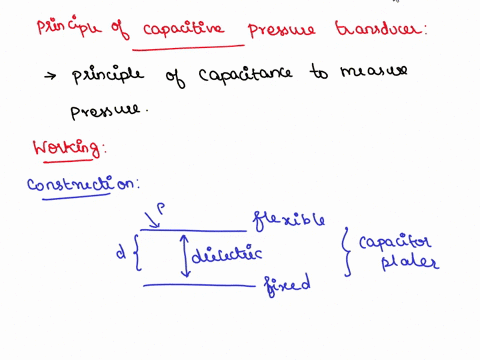 Principle of capacitive pressure transducer:
→ principle of capacitance to measure
pressure.
Working:
Construction:
P
flexible
d
dielectric
capacitor
plates
fixed